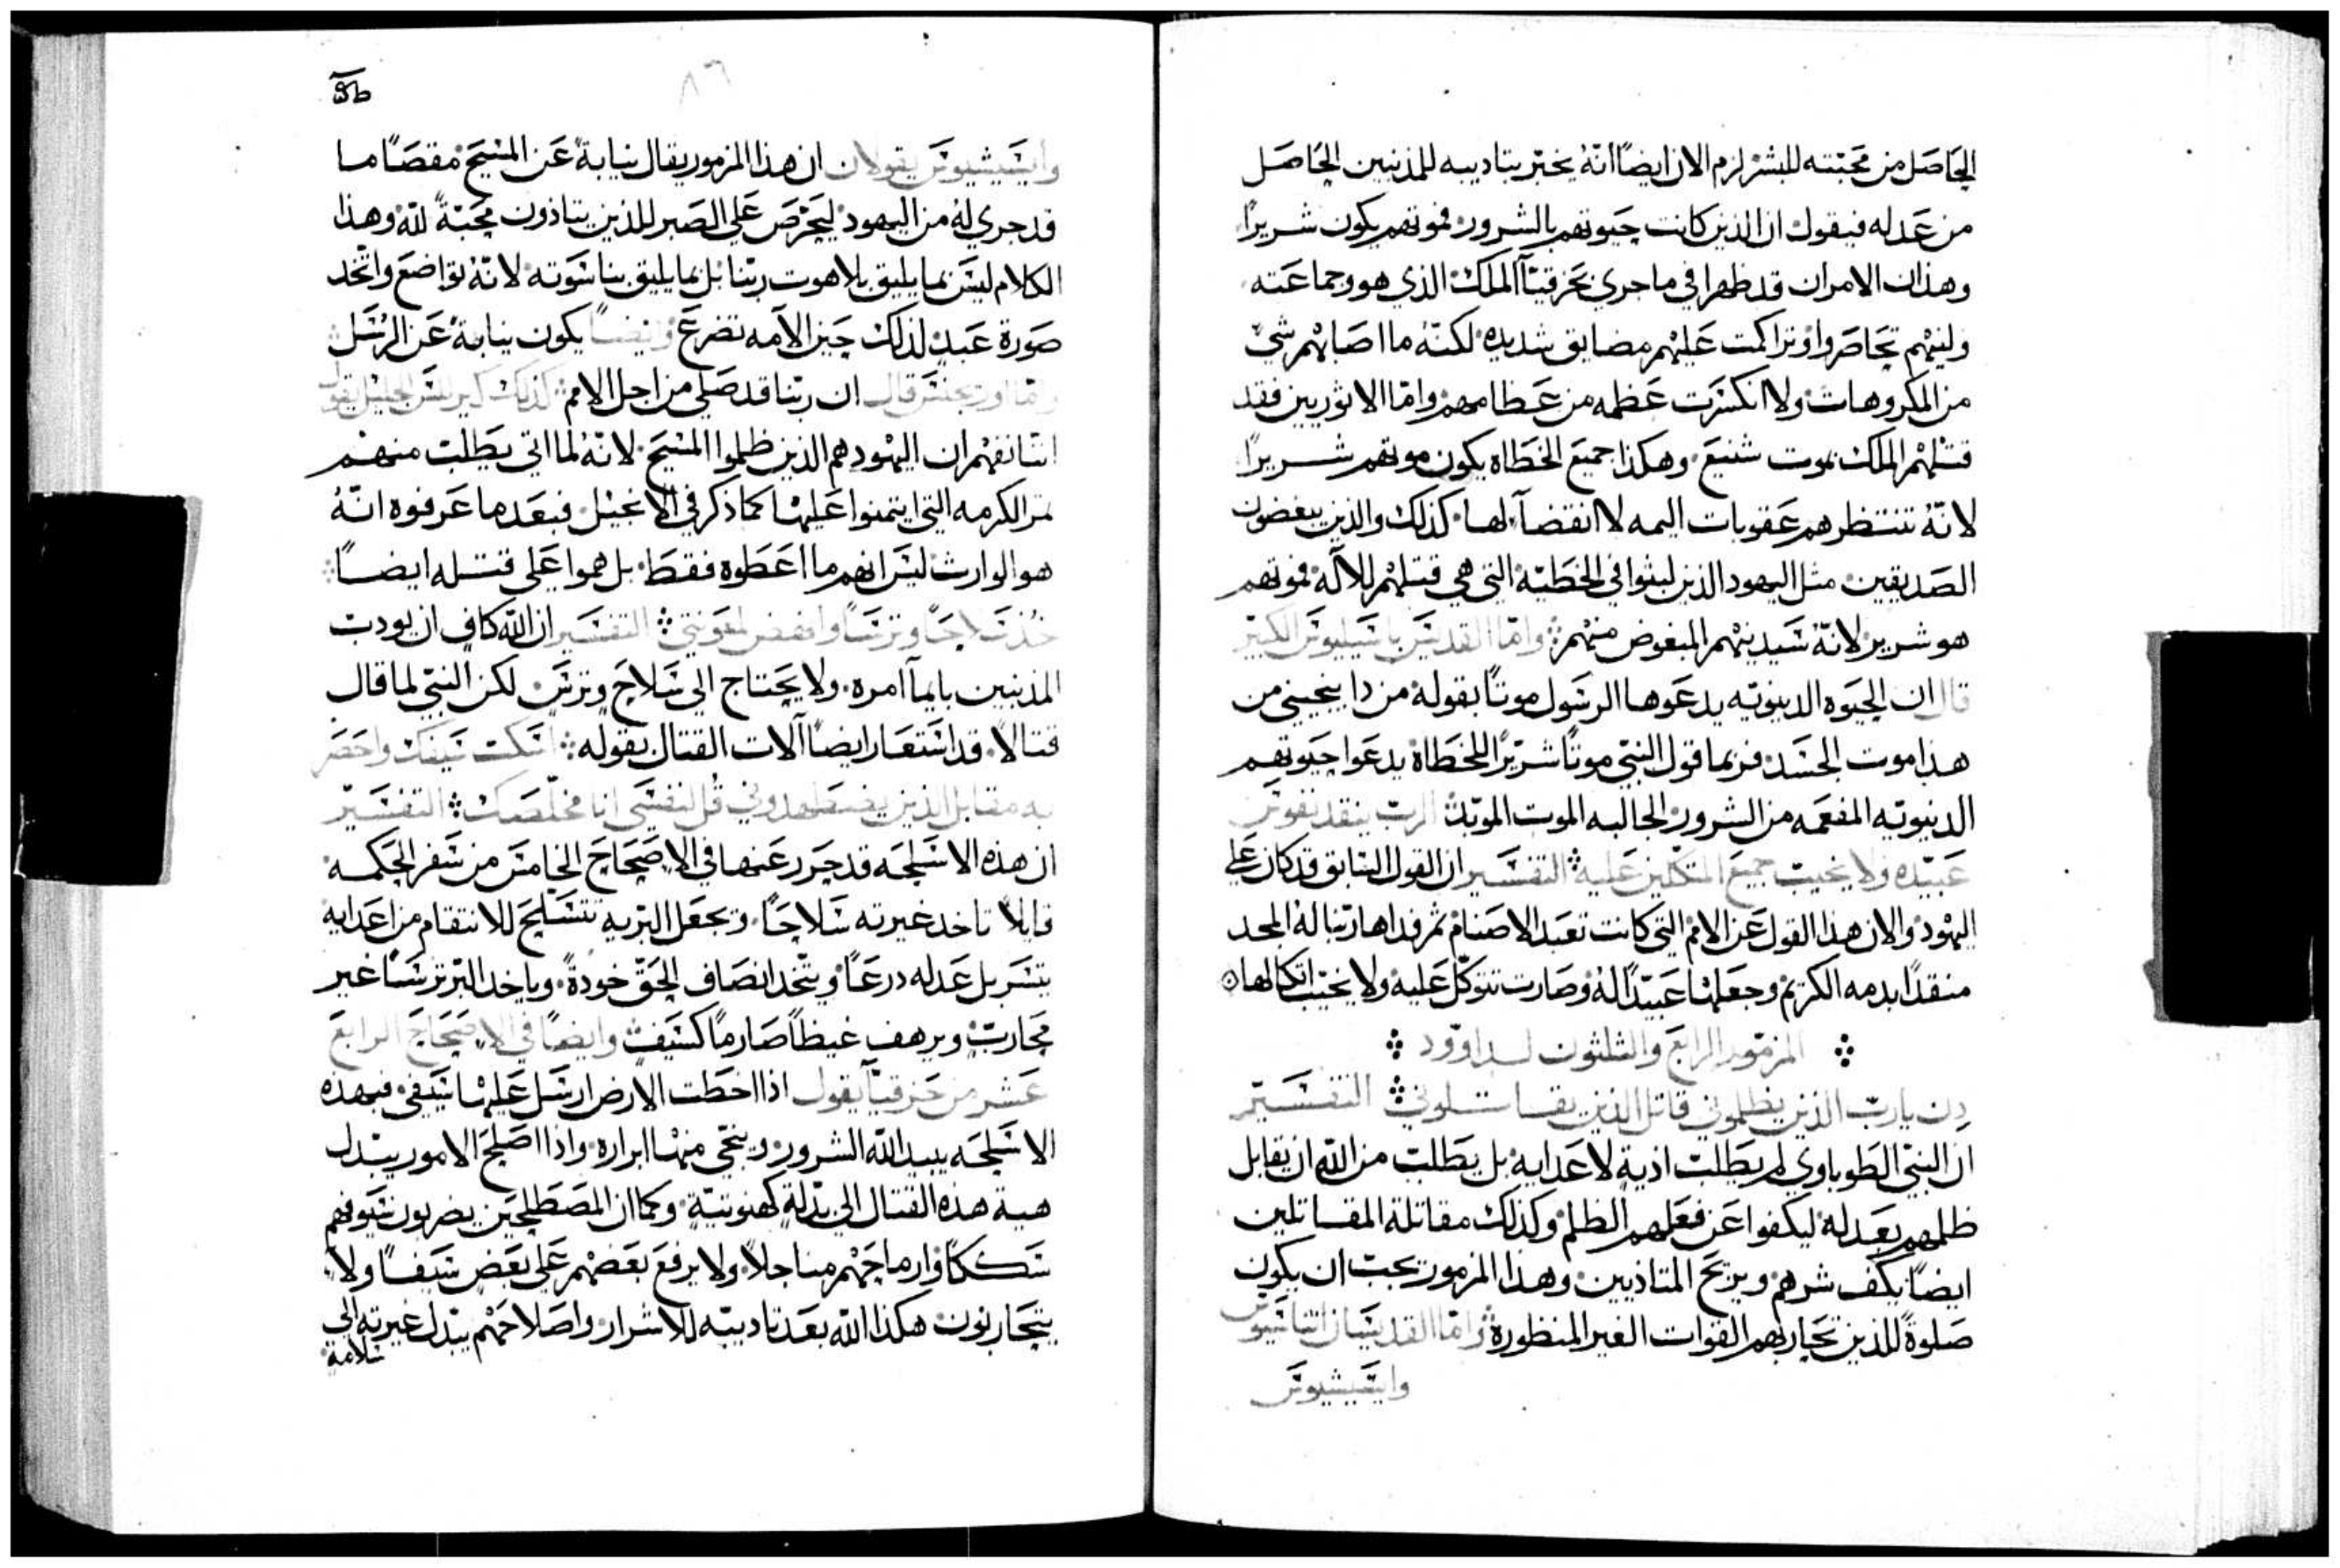 الحاصل من محبته للبشر لزم الان ايضاً انهُ يخبّر بتاديبه للمذنبين الحاصل
من عدله فيقول ان الذين كانت حيوتهم بالشرور فموتهم يكون شريراً
وهذان الامران قد ظهرا في ما جرى بحزقيّا الملك الذي هو وجماعته
ولئنهم تحاصروا وتراكمت عليهم مضايق شديده لكنّهُ ما اصابهم شيٌ
من المكروهات ولا انكسرت عظمه من عظامهم واما الاثوريين فقد
قتلهم الملك بموت شنيع وهكذا جميع الخطاه يكون موتهم شريراً
لانّهُ تنتظرهم عقوبات اليمه لا انقضآ لها كذلك والذين يبغضون
الصديقين مثل اليهود الذين لبثوا في الخطيّه التي هي قتلهم للاله فموتهم
هو شرير لانّهُ سيدينهم المبغوض منهم واما القديس باسيليوس الكبير
قال ان الحيوه الدنيويّه يدعوها الرسول موتاً بقوله من ذا ينجيني من
هذا موت الجسد فربما قول النبيّ موتاً شرّيراً للخطاة يدعوا حيوتهم
الدنيويّه المفعمه من الشرور الجالبه الموت الموبّد الربّ ينقذ نفوس
عبيّده ولا يخيب جميع المتكلين عليه التفسير ان القول السابق قد كان على
اليهود والان هذا القول عن الامم التي كانت تعبد الاصنام ثم فداها ربّنا لهُ المجد
منقذاً بدمه الكريم وجعلها عبيّداً لهُ وصارت تتوكّل عليه ولا يخيّب اتكالها
المزمور الرابع والثلثون لداوود
دِن يا ربّ الذين يظلموني قاتل الذين يقاتلوني التفسير
ان النبيّ الطوباوي لم يطلب اذية لاعدايه بل يطلب من الله ان يقابل
ظلمهم بعدله ليكفوا عن فعلهم الظلم وكذلك مقاتلة المقاتلين
ايضاً يكف شرهم ويريح المتاذيين وهذا المزمور يجب ان يكون
صلوةً للذين تحاربهم القوات الغير المنظورة واما القديسان اتناسيوس
وايسيشيوس
وايسيشيوس يقولان ان هذا المزمور يقال نيابةً عن المسيح مقصاً ما
قد جرى لهُ من اليهود ليحرّص على الصبر للذين يتاذون محبّةً لله وهذا
الكلام ليس بما يليق بلاهوت ربّنا بل بما يليق بناسوته لانّهُ تواضع واتّخد
صورة عبد لذلك حين الآمه تضرع وايضاً يكون نيابةً عن الرسل
واما اوريجنس قال ان ربّنا قد صلى من اجل الامم كذلك كيرللس الجليل يقول
اننا نفهم ان اليهود هم الذين ظلموا المسيح لانّهُ لما اتى يطلب منهم
ثمر الكرمه التي ايتمنوا عليها كما ذكر في الانجيل فبعد ما عرفوه انّهُ
هو الوارث ليس انهم ما اعطوه فقط بل هموا على قتله ايضاً
خُذ سلاحاً وترساً وانهض لمعونتي التفسير ان الله كافٍ ان يودب
المذنبين بايمآ امره ولا يحتاج الى سلاح وترس لكن النبيّ لما قال
قتالاً قد استعار ايضاً آلات القتال بقوله اسكب سيفك واحضر
به مقابل الذين يضطهدوني قُل لنفسي انا مخلّصك التفسير
ان هذه الاسلحه قد حرر عنها في الاصحاح الخامس من سفر الحكمه
قايلاً تاخد غيرته سلاحاً وتجعل البريه تتسلح للانتقام من اعدايه
يتسربل عدله درعاً ويتّخد انصاف الحقّ خودةً وياخد البّر ترساً غير
محارب ويرهف غيظاً صارماً كسيف وايضاً في الاصحاح الرابع
عشر من حزقيّا يقول اذا اخطت الارض ارسل عليها سيفي فبهذه
الاسلحه يبيد الله الشرور وينجّي منها ابراره واذا اصلح الامور يبّدل
هية هذه القتال الى بدلةٍ كهنوتيّةٍ وكما ان المصطلحين يضربون سيوفهم
سككاً وارماحهم مناجلاً ولا يرفع بعضهم على بعض سيفاً ولا
يتحاربون هكذا الله بعد تاديبّه للاشرار واصلاحهم يبّدل غيرته الى
سلامة